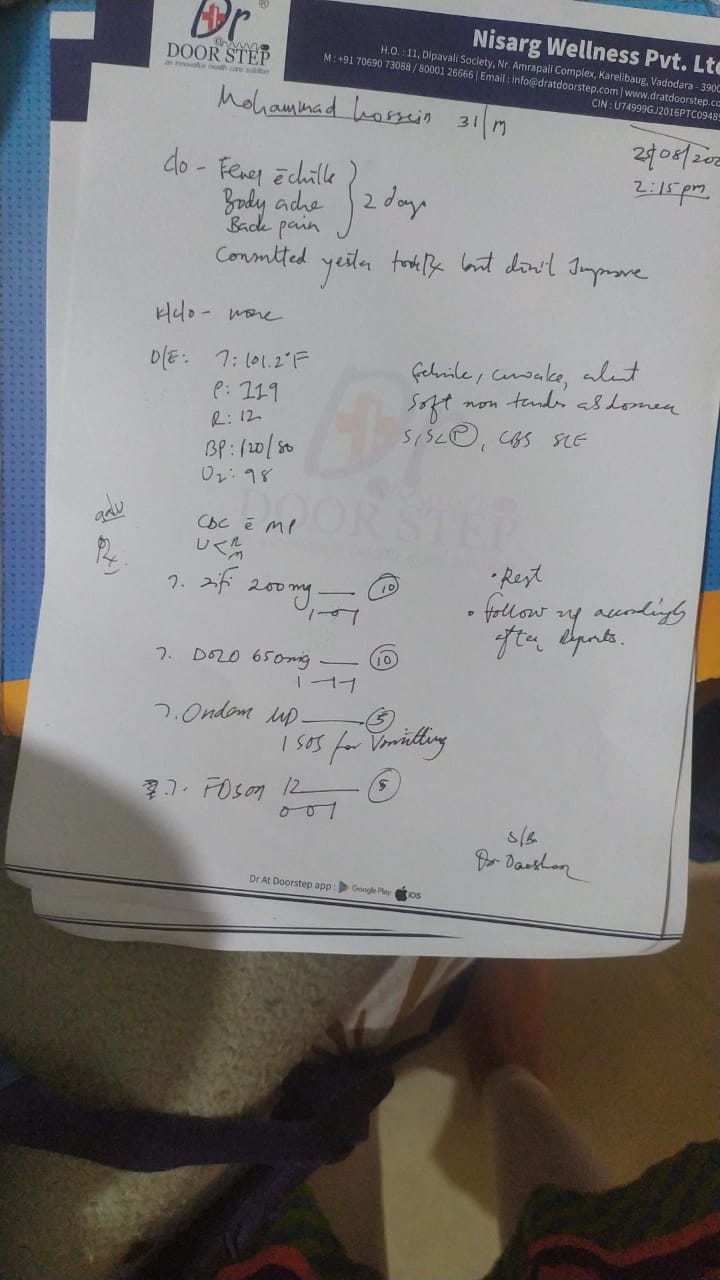 Dr
®
DOOR STEP
an innovative health care solution
Nisarg Wellness Pvt. Lt
H.O. : 11, Dipavali Society, Nr. Amrapali Complex, Karelibaug, Vadodara - 3900
M : +91 70690 73088 / 80001 26666 | Email : info@dratdoorstep.com | www.dratdoorstep.co
CIN : U74999GJ2016PTC0948
Mohammad Hossein 31/M
/08/202
2:15pm
c/o - Fever c̄ chills
Body ache
Back pain
} 2 days
Consulted yester took Rx but didn't Improve
K/c/o - none
O/E: T: 101.2°F
P: 119
R: 12
BP: 120/80
O2: 98
febrile, awake, alert
Soft non tender abdomen
S1S2 (P), CBS
adv
CBC c̄ MP
U < R M
Rx
T. Zifi 200mg — (10)
1-0-1
T. DOLO 650mg — (10)
1-1-1
T. Ondem MD — (5)
1 SOS for Vomitting
T. FDson 12 — (5)
0-0-1
• Rest
• Follow up accordingly
after Reports.
S/B
Dr. Darshan
Dr
DOOR STEP
Dr At Doorstep app : Google Play iOS